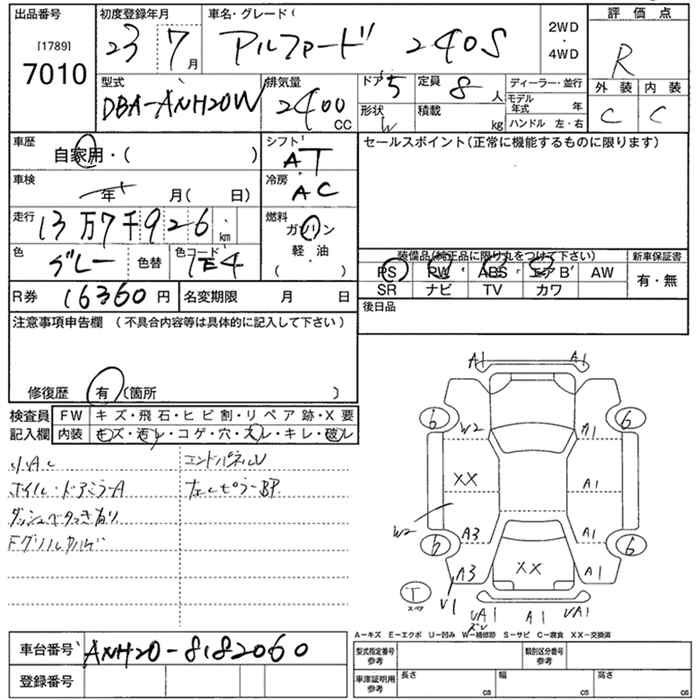 出品番号
[1789]
7010
初度登録年月
23 7月
車名・グレード(
アルファード 240S
2WD
・
4WD
評価点
R
外装 内装
C C
型式
DBA-ANH20W
排気量
2400
CC
ドア 5
形状 W
定員 8人
積載 kg
ディーラー・並行
モデル年式 年
ハンドル 左・右
車歴
自家用・( )
シフト
AT
セールスポイント(正常に機能するものに限ります)
車検
年 月( 日)
冷房
AC
走行
13万7千926 km
燃料
ガソリン
軽・油
・
( )
色 グレー 色替
色コード 1E4
装備品(純正品に限り丸をつけて下さい)
PS PW ABS エアB AW
SR ナビ TV カワ
新車保証書
有・無
R券 16360円
名変期限 月 日
後日品
注意事項申告欄 (不具合内容等は具体的に記入して下さい)
修復歴 有 (箇所 )
検査員記入欄
FW キズ・飛石・ヒビ割・リペア跡・X要
内装 キズ・汚レ・コゲ・穴・スレ・キレ・破レ
小A
エンドパネルU
ホイル・ドアミラーA
ダッシュベタつき有り
A1 A1
6 6
W2 A1
XX A1
W2
A3 A1
6 6
A3 XX A1
T
スペア
V1 UA1 A1 UA1
A-キズ E-エクボ U-凹み W-補修跡 S-サビ C-腐食 XX-交換済
車台番号 ANH20-8182060
登録番号
型式指定番号
参考
類別区分番号
参考
車庫証明用
参考
長さ cm 幅 cm 高さ cm